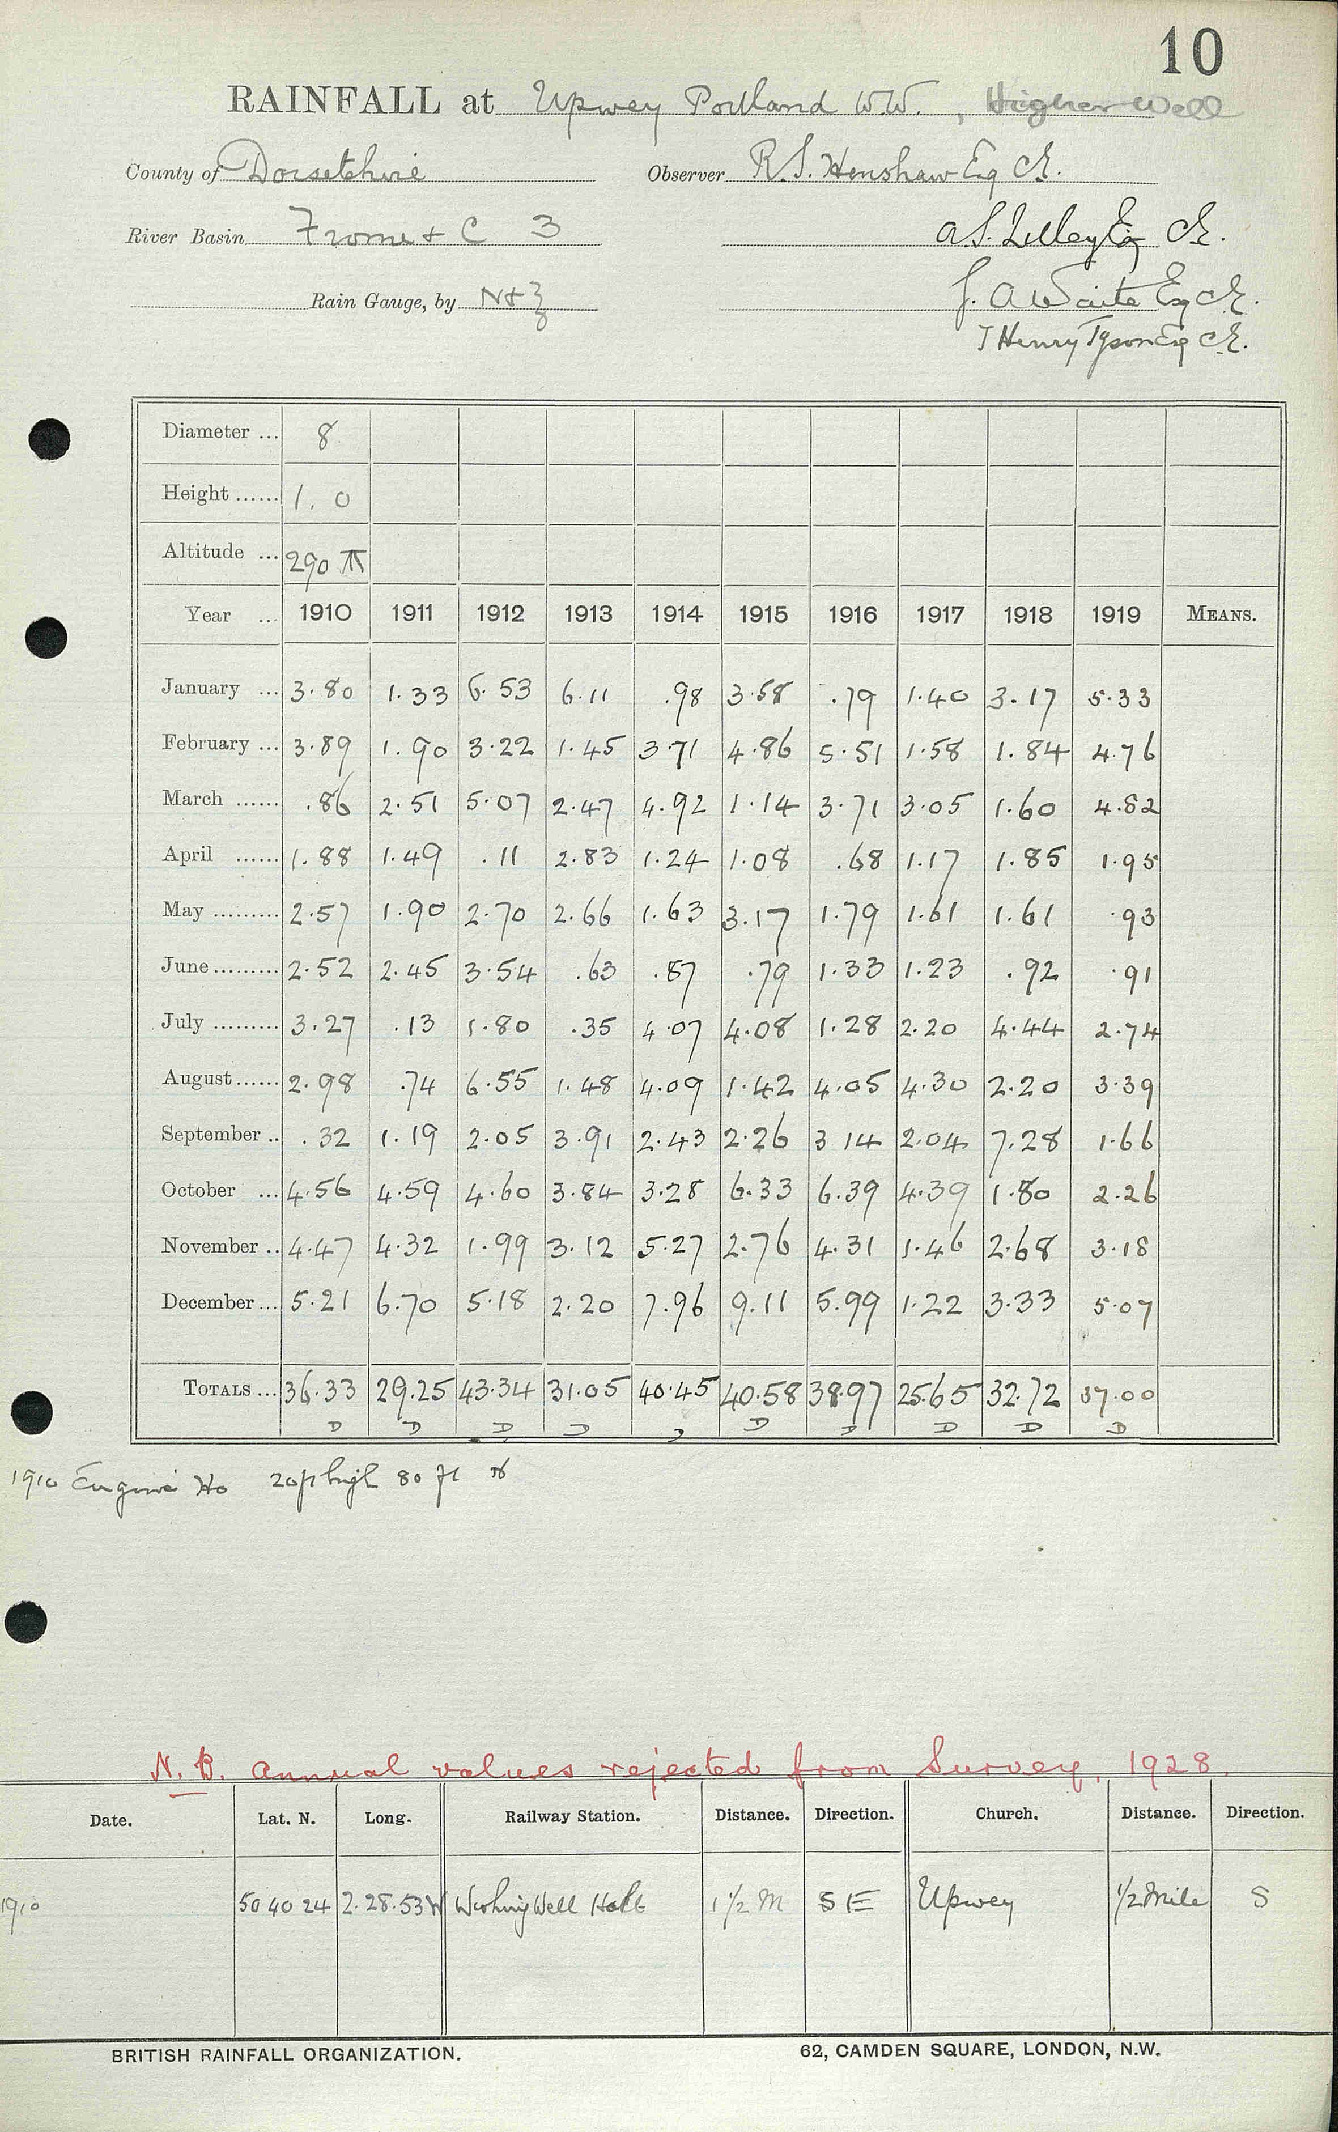 10
RAINFALL at Upwey Portland W.W. , Higher Well
County of Dorsetshire Observer R.S. Henshaw Esq CE.
River Basin Frome & C 3 A.S. Lilley Esq CE.
Rain Gauge, by N&Z J. A Waite Esq CE.
T Henry Tyson Esq CE.
Diameter ... 8
Height ...... 1. 0
Altitude ... 290
Year ... 1910 1911 1912 1913 1914 1915 1916 1917 1918 1919 MEANS.
January ... 3.80 1.33 6.53 6.11 .98 3.58 .79 1.40 3.17 5.33
February ... 3.89 1.90 3.22 1.45 3.71 4.86 5.51 1.58 1.84 4.76
March ...... .86 2.51 5.07 2.47 4.92 1.14 3.71 3.05 1.60 4.82
April ...... 1.88 1.49 .11 2.83 1.24 1.08 .68 1.17 1.85 1.95
May ......... 2.57 1.90 2.70 2.66 1.63 3.17 1.79 1.61 1.61 .93
June ......... 2.52 2.45 3.54 .63 .87 .79 1.33 1.23 .92 .91
July ......... 3.27 .13 1.80 .35 4.07 4.08 1.28 2.20 4.44 2.74
August ...... 2.98 .74 6.55 1.48 4.09 1.42 4.05 4.30 2.20 3.39
September .. .32 1.19 2.05 3.91 2.43 2.26 3.14 2.04 7.28 1.66
October ... 4.56 4.59 4.60 3.84 3.28 6.33 6.39 4.39 1.80 2.26
November .. 4.47 4.32 1.99 3.12 5.27 2.76 4.31 1.46 2.68 3.18
December ... 5.21 6.70 5.18 2.20 7.96 9.11 5.99 1.22 3.33 5.07
TOTALS ... 36.33 29.25 43.34 31.05 40.45 40.58 38.97 25.65 32.72 37.00
D D D D D D D D D D
1910 Engine Ho 20ft high 80 ft
N. B. Annual values rejected from Survey, 1928.
Date. Lat. N. Long. Railway Station. Distance. Direction. Church. Distance. Direction.
1910 50 40 24 2.28.53W Wishing Well Halt 1 1/2 M SE Upwey 1/2 Mile S
BRITISH RAINFALL ORGANIZATION. 62, CAMDEN SQUARE, LONDON, N.W.